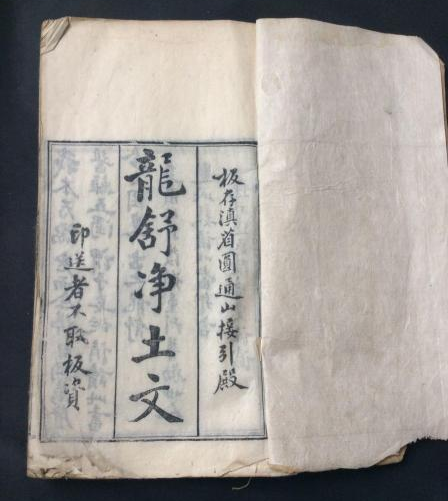 板存滇省圓通山接引殿
龍舒净土文
印送者不取板資